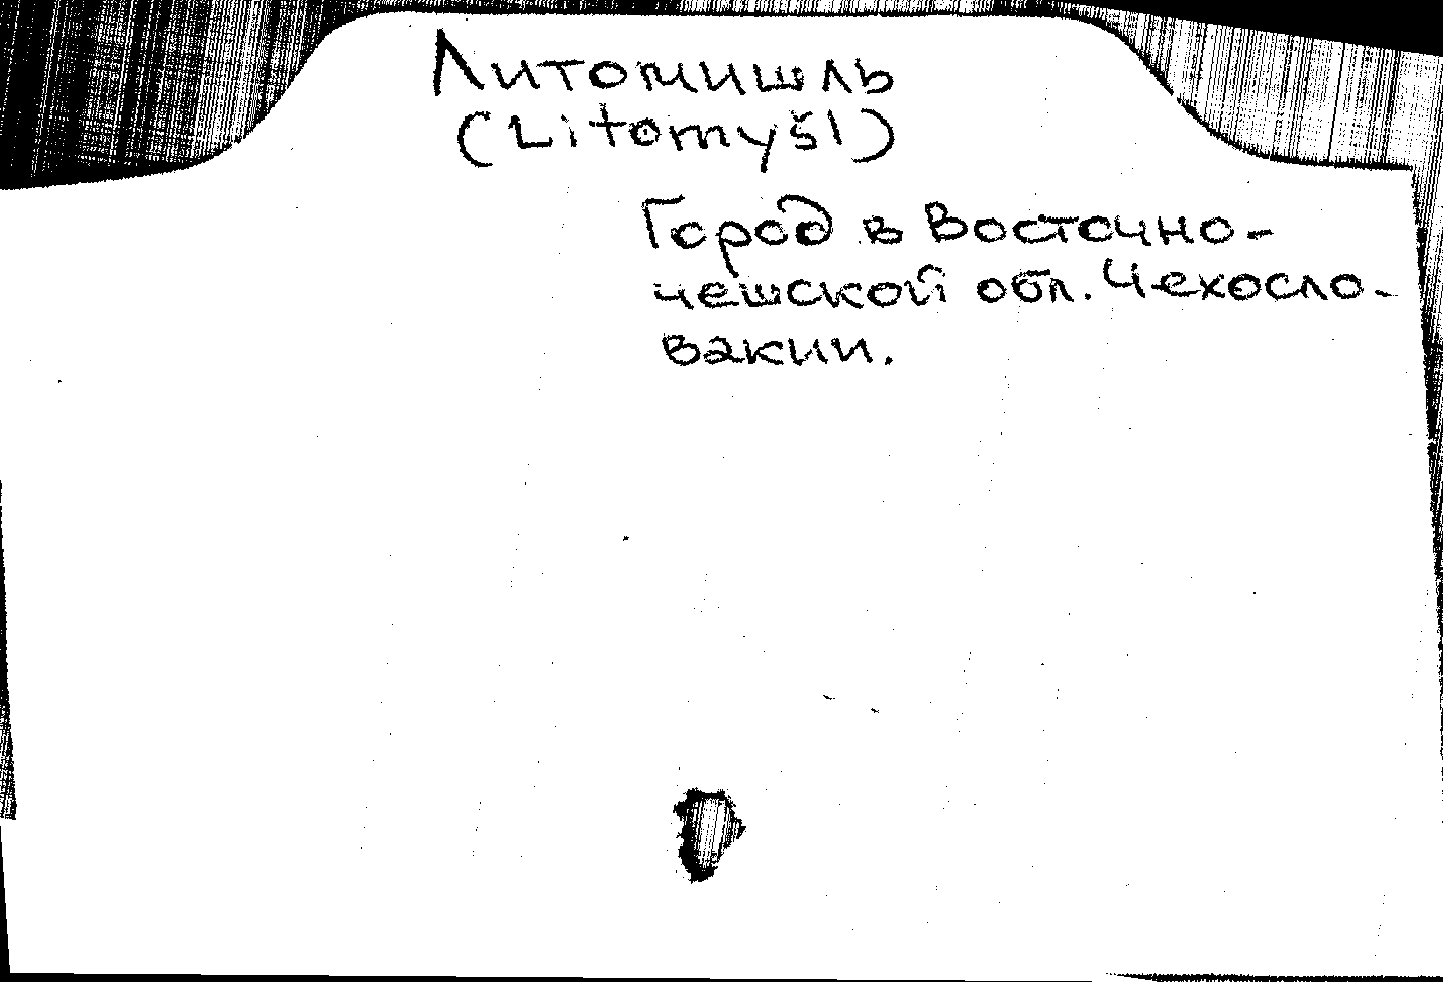 Литомишль
(Litomyšl)
Город в Восточно-
чешской обл. Чехосло-
вакии.